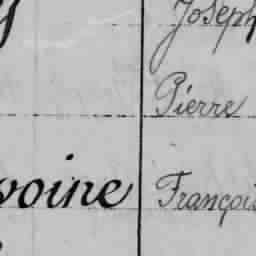 Joseph
Pierre
voine François